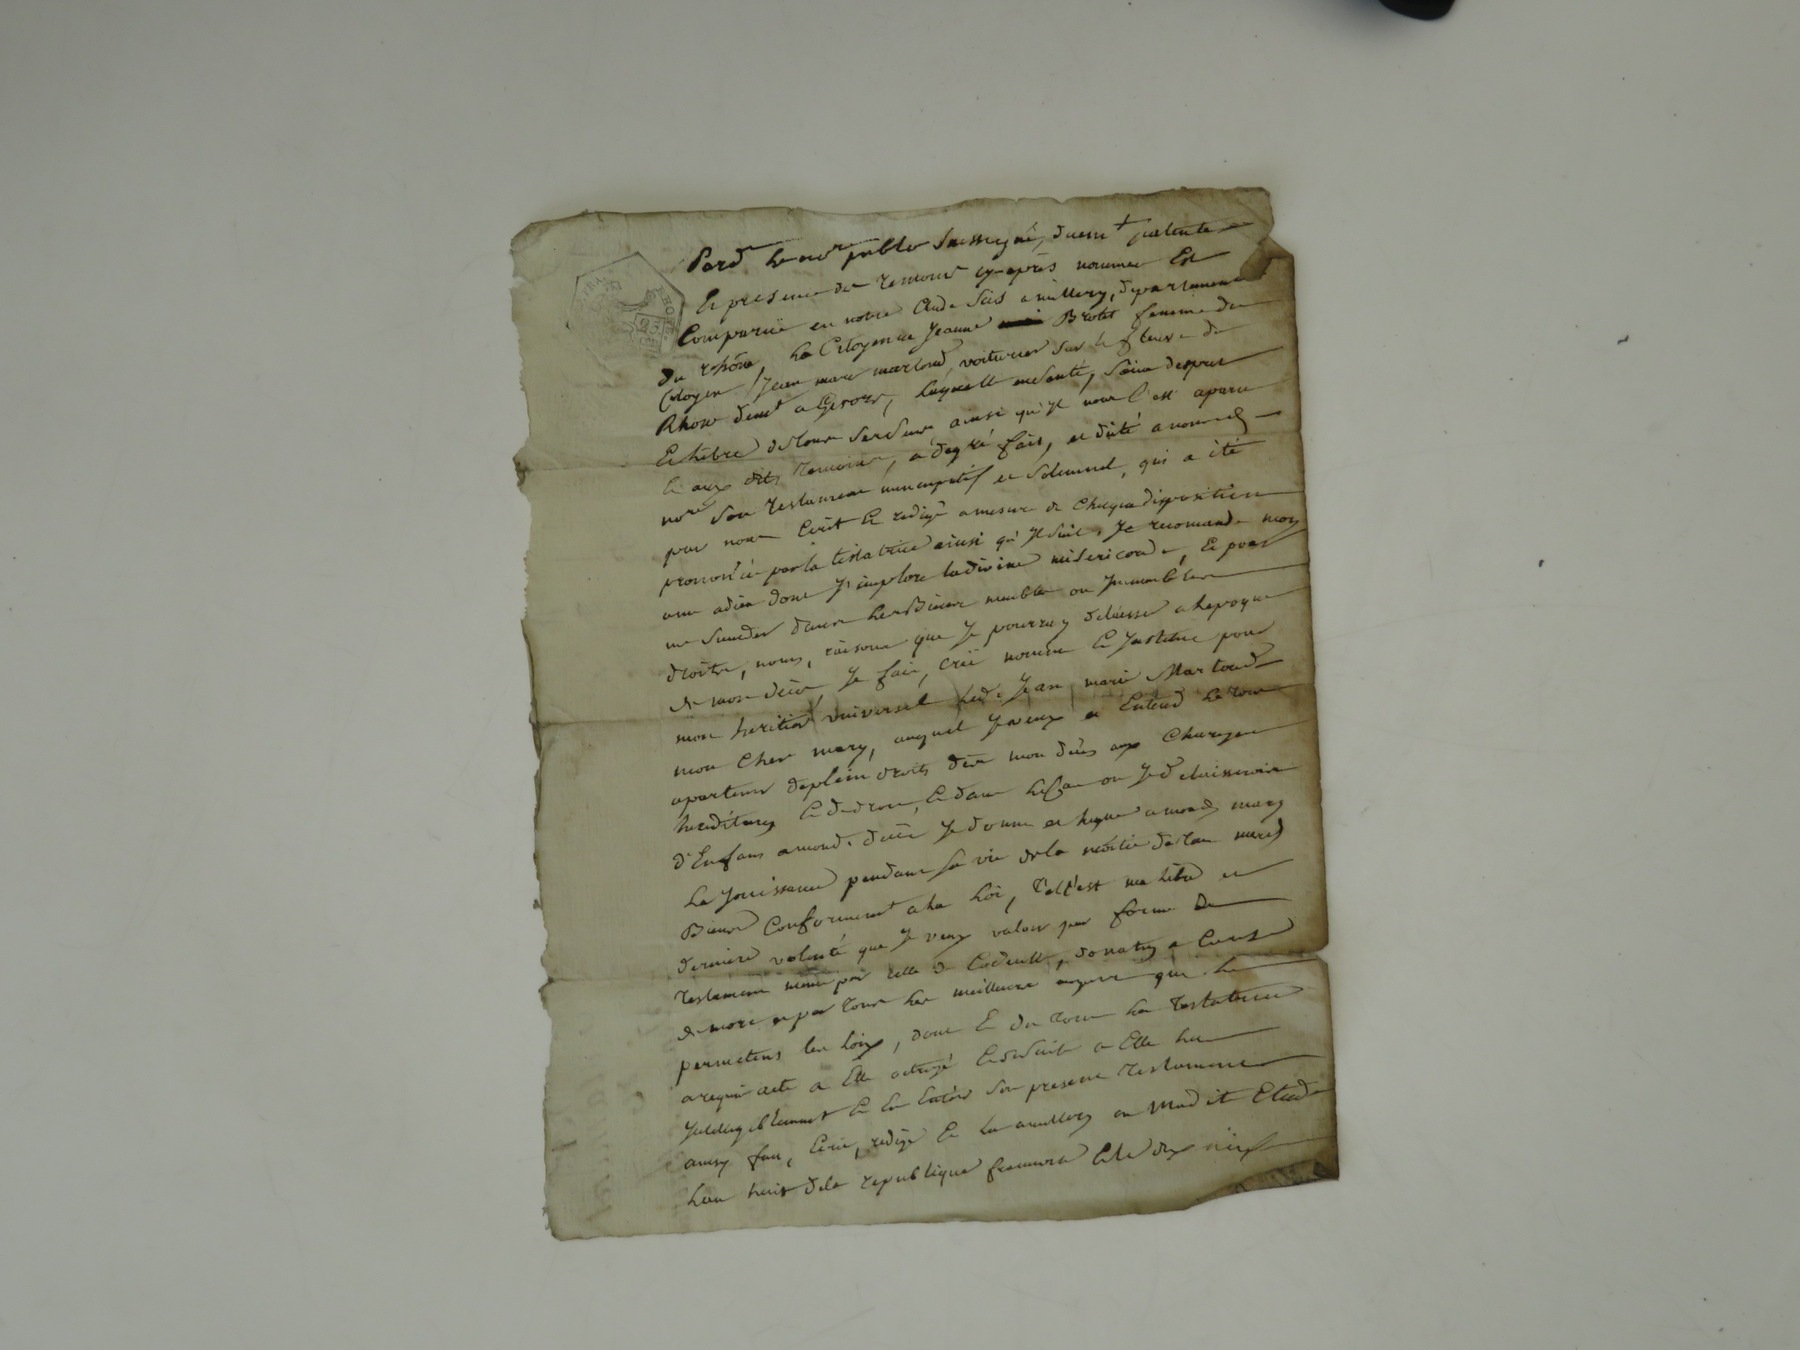 Pard. le nore public soussigné, duemt patenté
Et presence des temoins cy-après nommés Est
Comparüe en notre étude sise a millery, departement
du rhône, la Citoyenne Jeanne Brotet femme du
Citoyen Jean marc martoud, voiturier sur le fleuve du
Rhône demt a Givors, laquelle en santé, saine desprit
Et libre de tous ses sens ainsi qu'il nous l'est aparu
Et aux dits temoins, a de gré fait, et dicté a nousd.
nore son testament nuncupatif et solemnel, qui a été
par nous Ecrit Et redigé a mesure de chaque disposition
prononcée par la testatrice ainsi qu'il suit. Je recomande mon
ame a dieu dont J'implore la divine misericorde, Et pour
me succeder dans les Biens meubles ou Immeubles
droits, noms, raisons que Je pourray delaisser a l'epoque
de mon décès, Je fais, créé nomme Et Institue pour
mon heritier universel led. Jean marie Martoud
mon cher mary, auquel Je veux et Entend le tout
apartenir de plein droit des mon décès aux Charges
hereditaires Et de droit, Et dans le cas ou Je delaisserois
d'Enfans a mond. décès Je donne et legue a mond. mary
la Jouissance pendant sa vie de la moitié de tous mesd.
Biens Conformemt a la Loi, telle est ma libre et
derniere volonté que Je veux valoir par forme de
testament même par celle de Codicille, donation a Cause
de mort et par tous les meilleurs moyens que le
permettent les Loix, dont Et du tout la testatrice
a requis acte a Elle octroyé Et de suite a Elle lu
Intelligiblement Et En Entier son present testament
ainsy fait, Ecrit, redigé Et lu a millery en Mad ite Etude
L'an huit de la republique francaise Et le dix niv